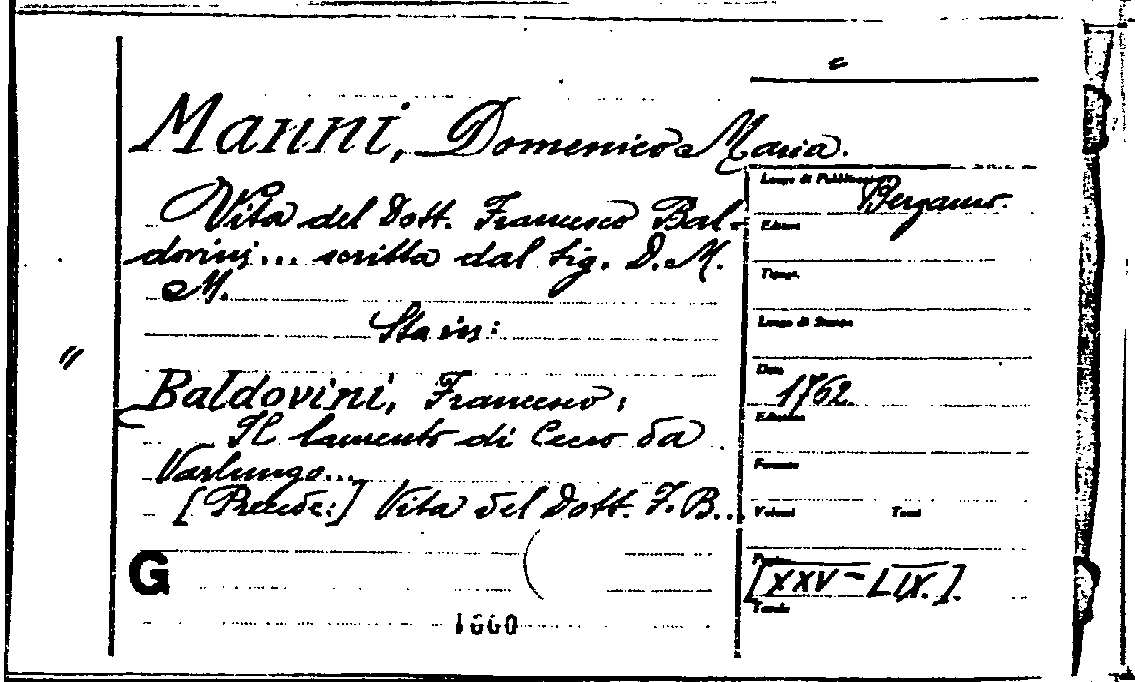 Manni, Domenico Maria.
Luogo di Pubblicaz. Bergamo.
Vita del Dott. Francesco Bal-
Editore
dovini... scritta dal Sig. D. M.
Tipogr.
M.
Luogo di Stampa
Sta in:
Data
1762.
Baldovini, Francesco:
Edizione
Il lamento di Cecco da
Varlungo...
Formato
[Precede:] Vita del Dott. F. B...
Volumi Tomi
G
Pagine
[XXV-LIX.].
Tavole
1660